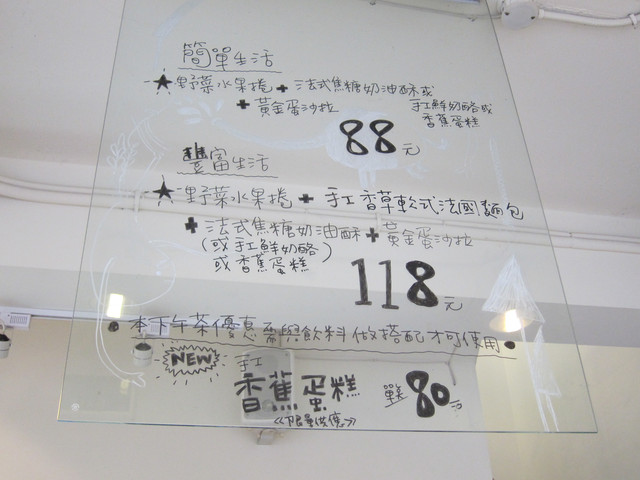 簡單生活
★野菜水果捲+法式焦糖奶油酥或
手工鮮奶酪或
香蕉蛋糕
+黃金蛋沙拉
88元
豐富生活
★野菜水果捲+手工香草軟式法國麵包
+法式焦糖奶油酥+黃金蛋沙拉
(或手工鮮奶酪
或香蕉蛋糕)
118元
●本下午茶優惠需與飲料做搭配才可使用●
NEW 手工
香蕉蛋糕 單點80元
≪限量供應≫